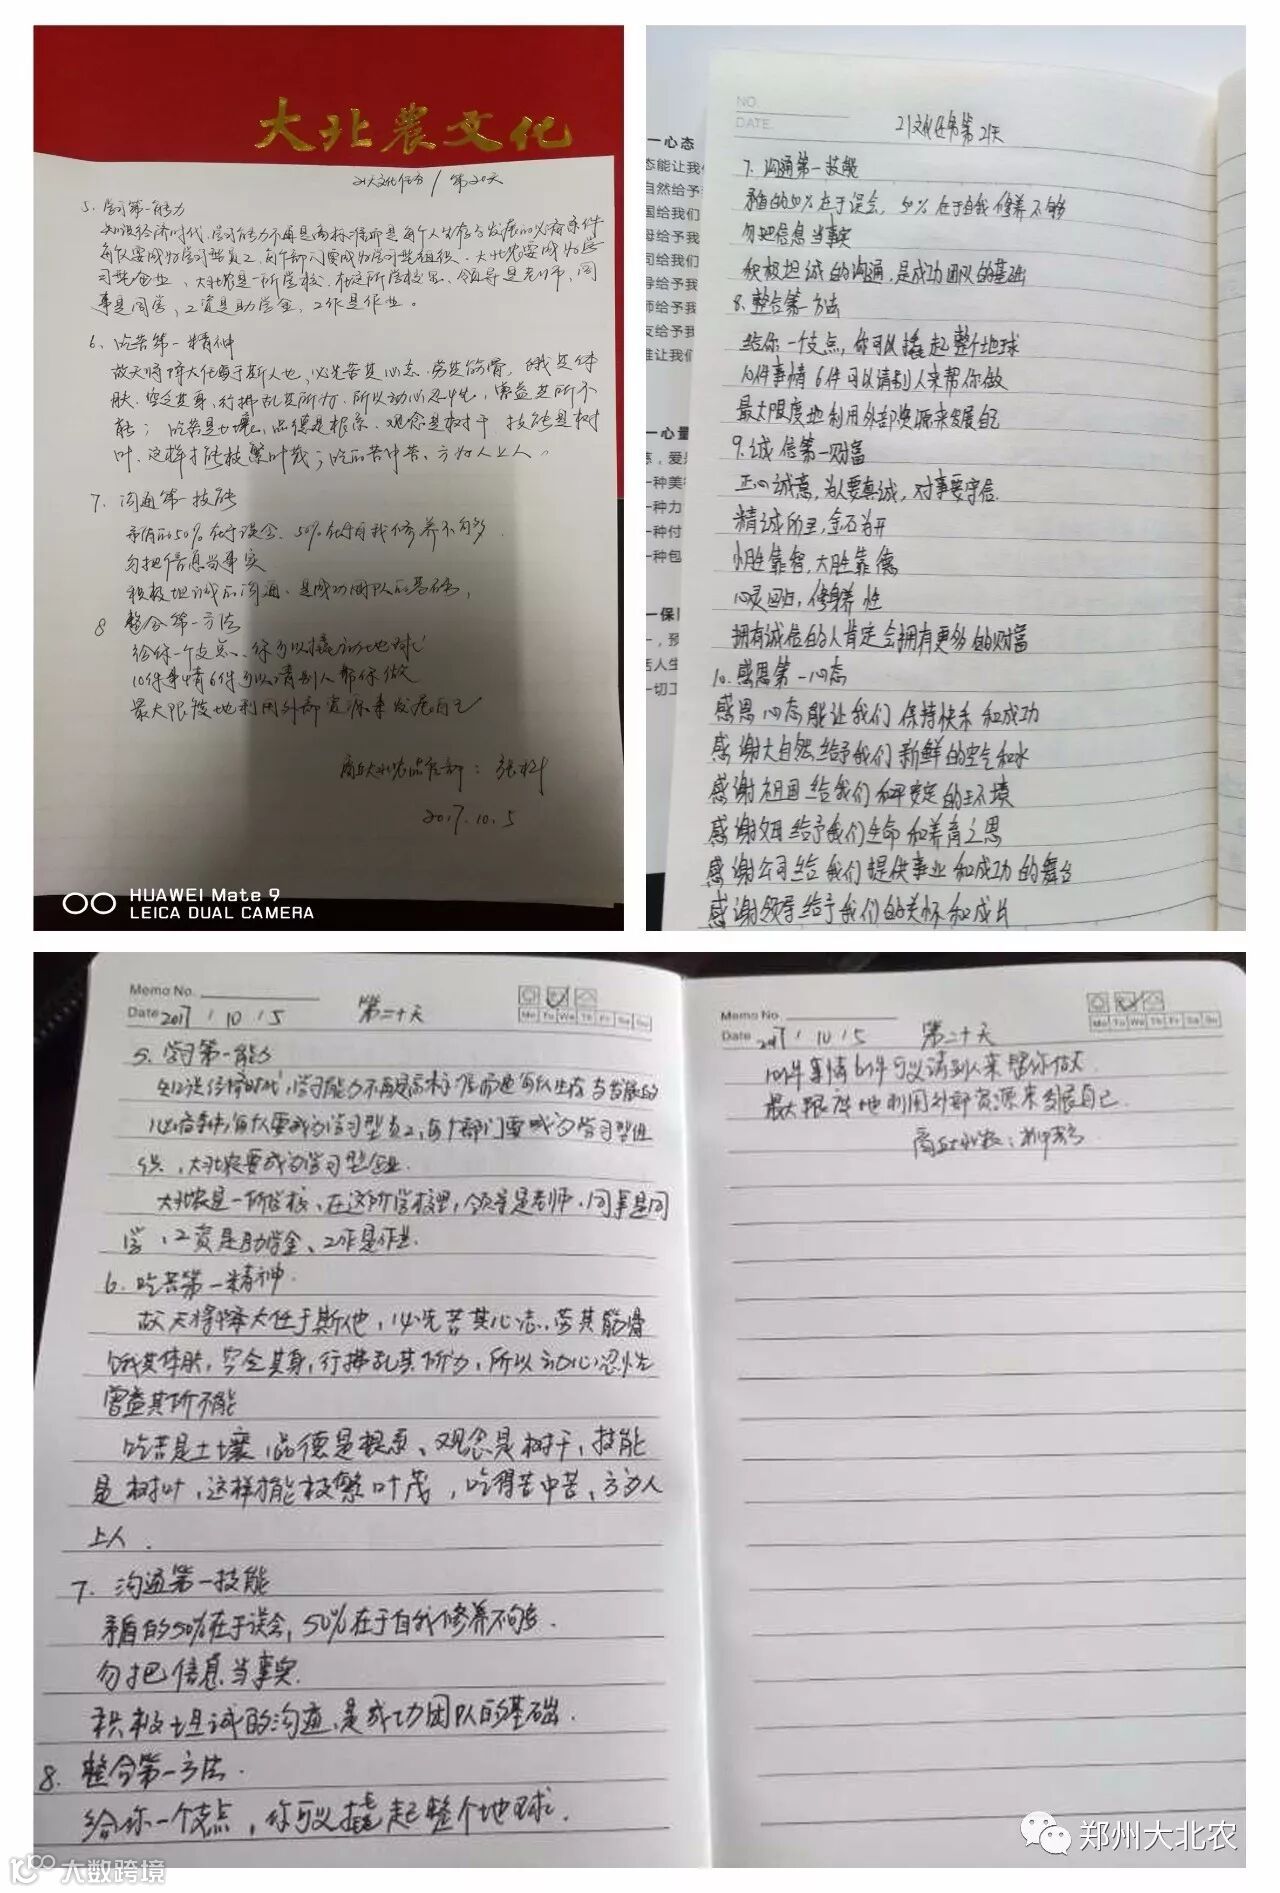 大北农文化
21天文化任务/第20天
5、学习第一能力
知识经济时代,学习能力不再是高标准而是每个人生存与发展的必备条件
每人要成为学习型员工,每个部门要成为学习型组织、大北农要成为学
习型企业、大北农是一所学校、在这所学校里、领导是老师、同
事是同学、工资是助学金、工作是作业。
6、吃苦第一精神
故天将降大任于斯人也,必先苦其心志、劳其筋骨,饿其体
肤、空乏其身,行拂乱其所为、所以动心忍性,曾益其所不
能;吃苦是土壤、品德是根系、观念是树干、技能是树
叶、这样才能枝繁叶茂;吃的苦中苦、方为人上人。
7、沟通第一技能
矛盾的50%在于误会、50%在于自我修养不够
勿把信息当事实
积极坦诚的沟通、是成功团队的基础,
8 整合第一方法
给你一个支点、你可以撬动地球
10件事情6件可以请别人帮你做
最大限度地利用外部资源来发展自己
2017.10.5
HUAWEI Mate 9
LEICA DUAL CAMERA
NO.
DATE.
21文化任务第21天
7、沟通第一技能
矛盾的50%在于误会,50%在于自我修养不够
勿把信息当事实
积极坦诚的沟通,是成功团队的基础
8、整合第一方法
给你一个支点,你可以撬起整个地球
10件事情6件可以请别人来帮你做
最大限度地利用外部资源来发展自己
9、诚信第一财富
正心诚意,为人要真诚,对事要守信
精诚所至,金石为开
小胜靠智,大胜靠德
心灵回归,修身养性
拥有诚信的人肯定会拥有更多的财富
10、感恩第一心态
感恩心态能让我们保持快乐和成功
感谢大自然给予我们新鲜的空气和水
感谢祖国给我们和平安定的环境
感谢父母给予我们生命和养育之恩
感谢公司给我们提供事业和成功的舞台
感谢领导给予我们的关怀和成长
一心态
态能让我们
自然给予我
国给我们
母给予我
司给我们
导给予我
师给予我
友给予我
谁让我们
一心量
一种美德
一种力
一种付
一种包
一保
活人生
一切工
Memo No.
Date 2017 / 10 / 5 第二十天
Mo Tu We Th Fr Sa Su
5、学习第一能力
知识经济时代,学习能力不再是高标准而是每人生存与发展的
必备条件,每人要成为学习型员工,每个部门要成为学习型组
织、大北农要成为学习型企业.
大北农是一所学校、在这所学校里,领导是老师、同事是同
学、工资是助学金、工作是作业.
6、吃苦第一精神.
故天将降大任于斯他,必先苦其心志、劳其筋骨
饿其体肤,空乏其身,行拂乱其所为,所以动心忍性
曾益其所不能
吃苦是土壤,品德是根系、观念是树干,技能
是树叶,这样才能枝繁叶茂,吃得苦中苦、方为人
上人.
7、沟通第一技能
矛盾的50%在于误会,50%在于自我修养不够.
勿把信息当事实.
积极坦诚的沟通,是成功团队的基础.
8、整合第一方法.
给你一个支点,你可以撬起整个地球.
Memo No.
Date 2017 / 10 / 5 第二十天
Mo Tu We Th Fr Sa Su
10件事情6件可以请别人来帮你做
最大限度地利用外部资源来发展自己.
郑州大北农
大数跨境